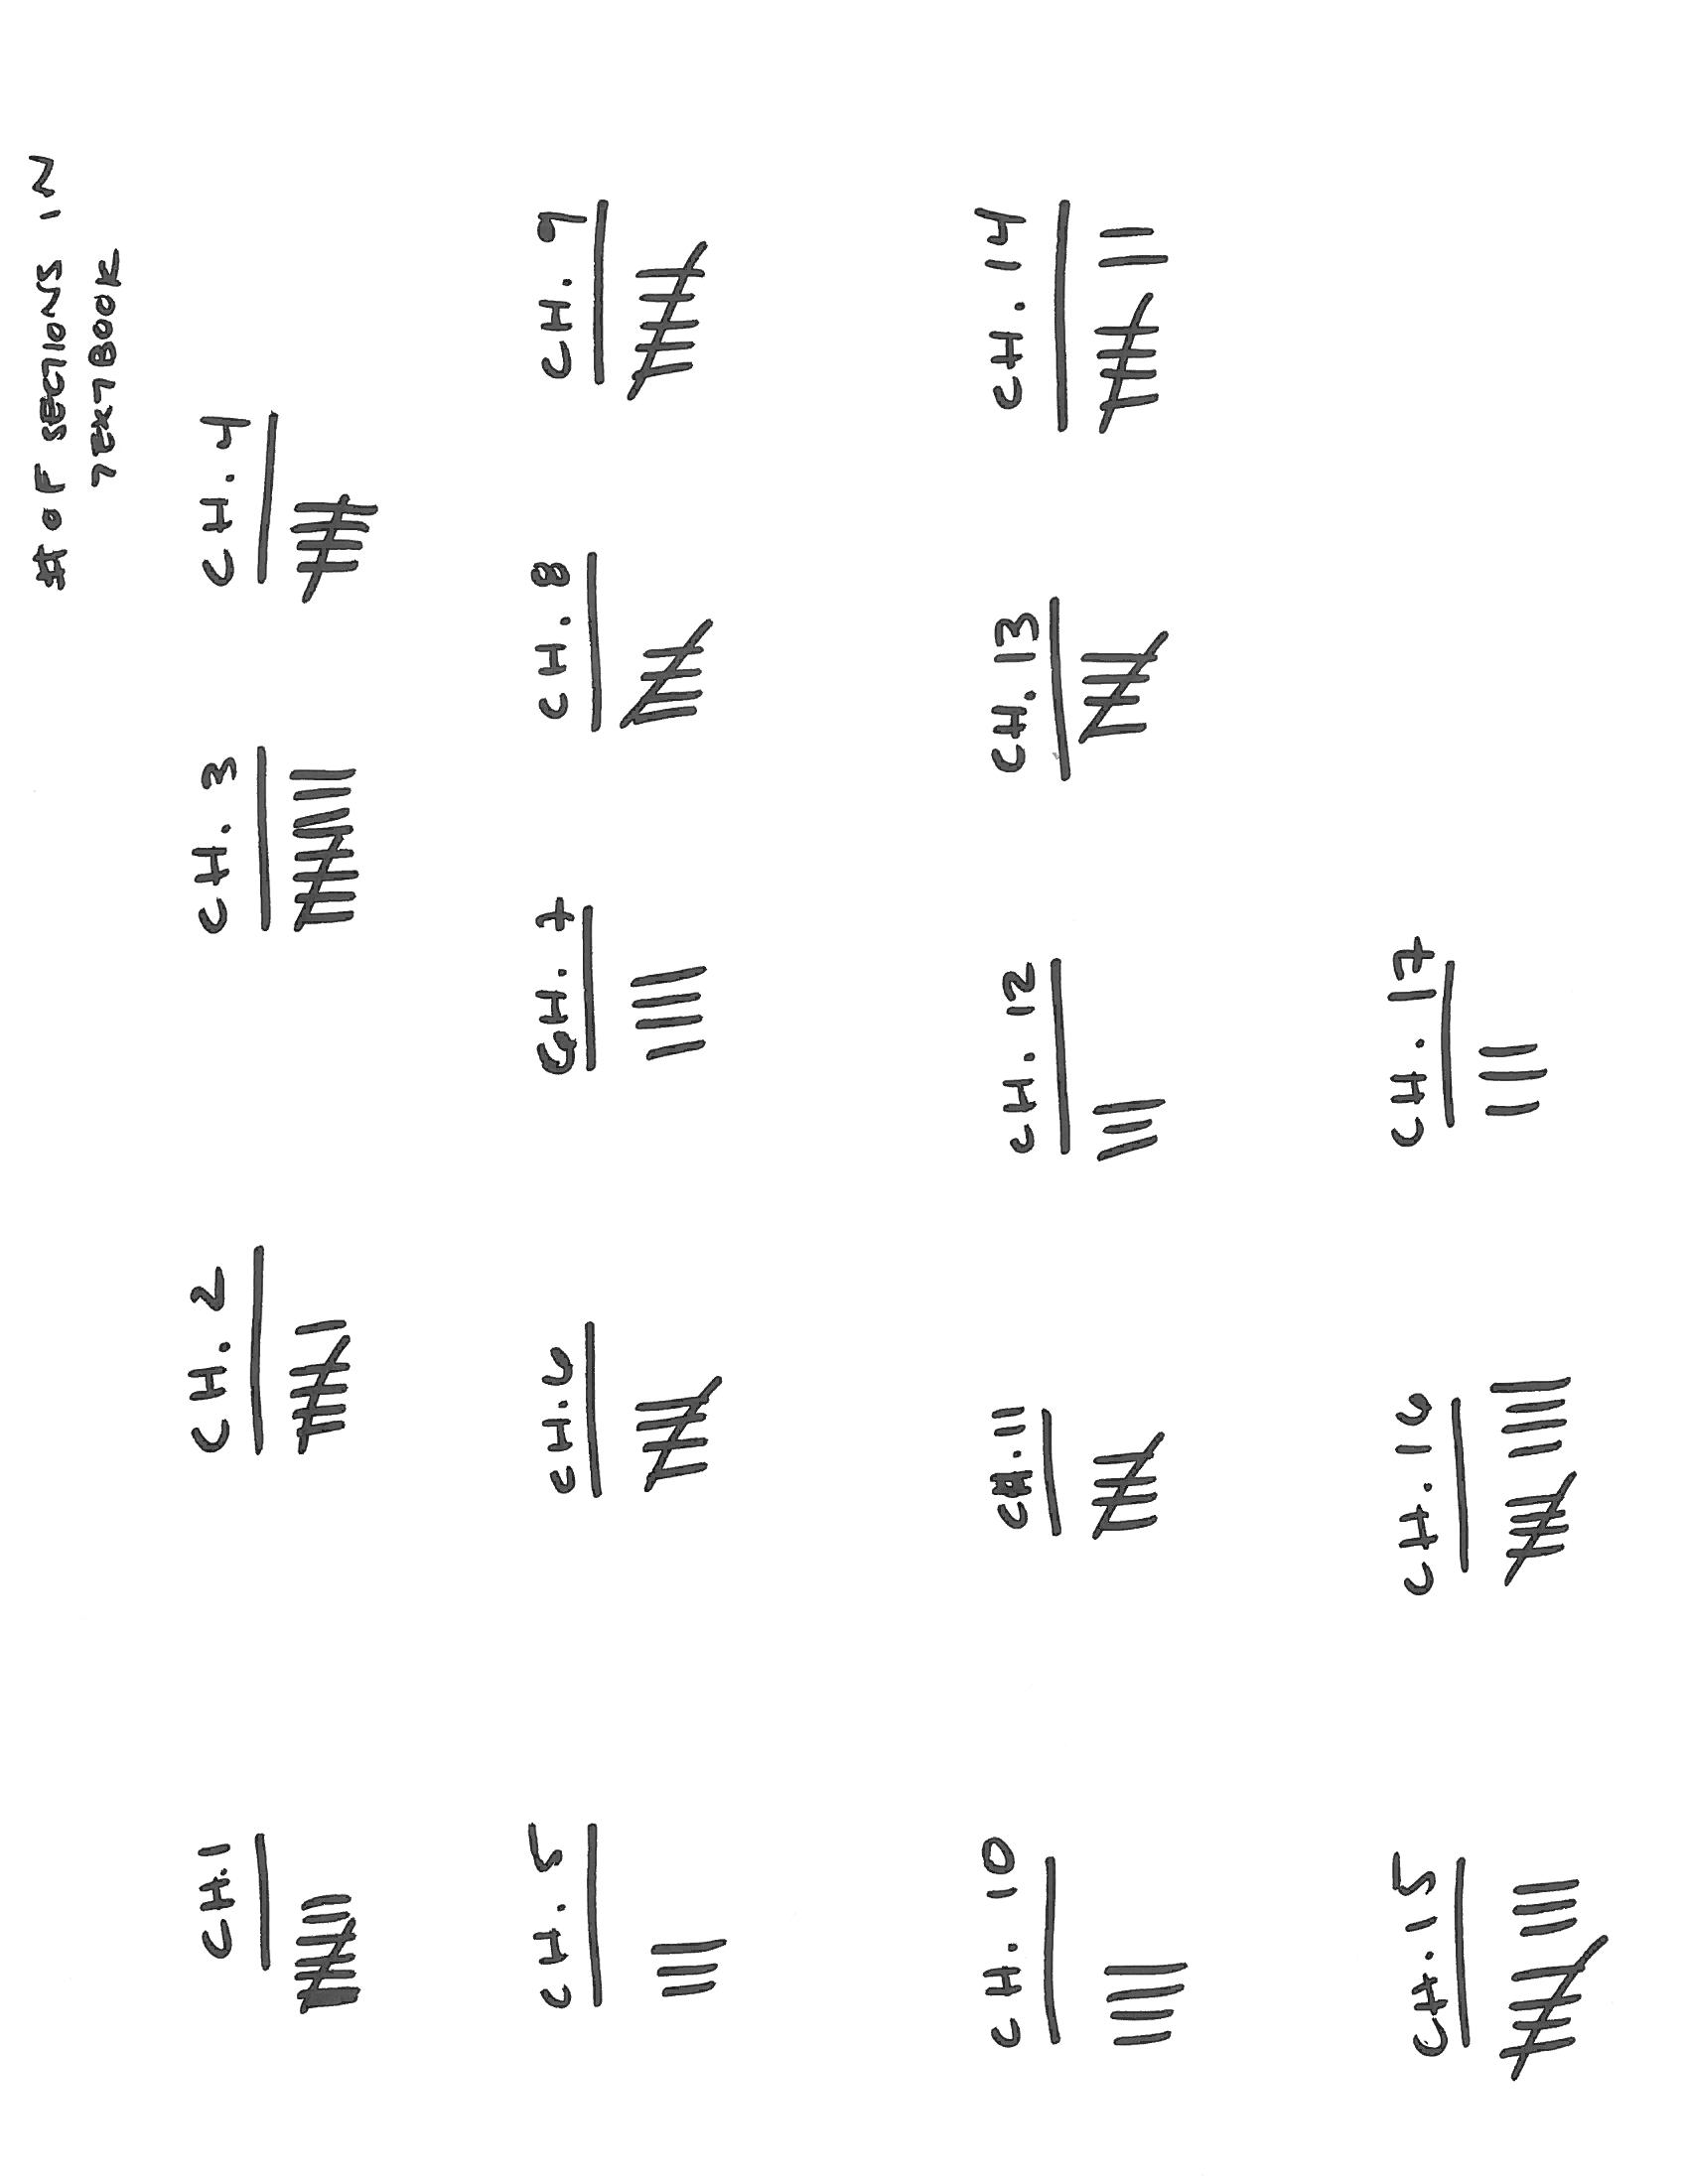 # OF SECTIONS IN
TEXTBOOK
CH.1 CH. 2 CH. 3 CH. 4
CH. 5 CH. 6 CH. 7 CH. 8 CH. 9
CH. 10 CH. 11 CH. 12 CH. 13 CH. 14
CH. 15 CH. 16 CH. 17